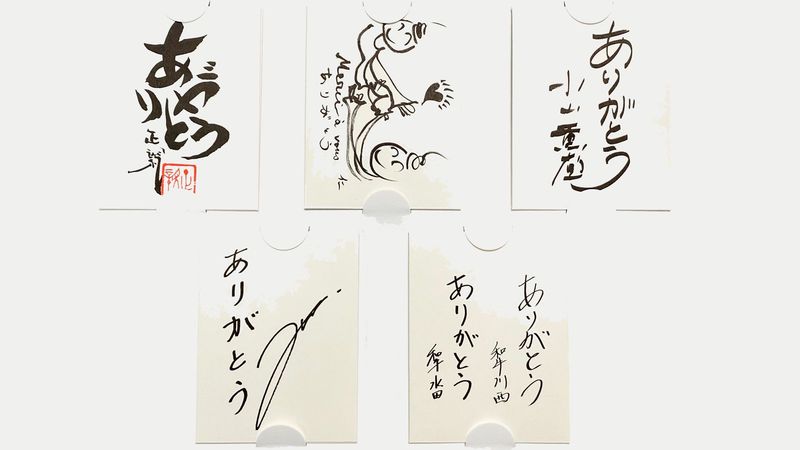 ありがとう
Merci à vous
ありがとう
仁
ありがとう
小山薫堂
ありがとう
ありがとう
和牛川西
ありがとう
和牛水田